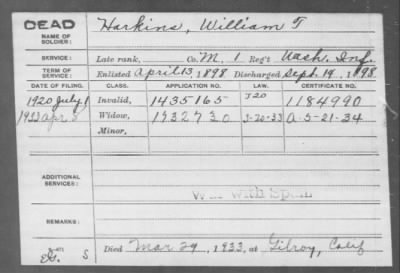 DEAD Harkins, William T
NAME OF SOLDIER:
SERVICE: Late rank, Co. M, 1 Reg't Wash. Inf.
TERM OF SERVICE: Enlisted April 13, 1898 Discharged Sept. 19, 1898
DATE OF FILING. CLASS. APPLICATION NO. LAW. CERTIFICATE NO.
1920 July 1 Invalid, 1435165 J20 1184990
1933 Apr 8 Widow, 1732730 3-20-33 A-5-21-34
Minor,
ADDITIONAL SERVICES:
War with Spain
REMARKS:
Died Mar 29, 1933, at Gilroy, Calif
S